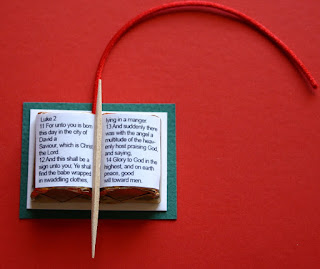 Luke 2
11 For unto you is born
this day in the city of
David a
Saviour, which is Christ
the Lord.
12 And this shall be a
sign unto you; Ye shall
find the babe wrapped
in swaddling clothes,
lying in a manger
13 And suddenly there
was with the angel a
multitude of the heav-
enly host praising God,
and saying,
14 Glory to God in the
highest, and on earth
peace, good
will toward men.